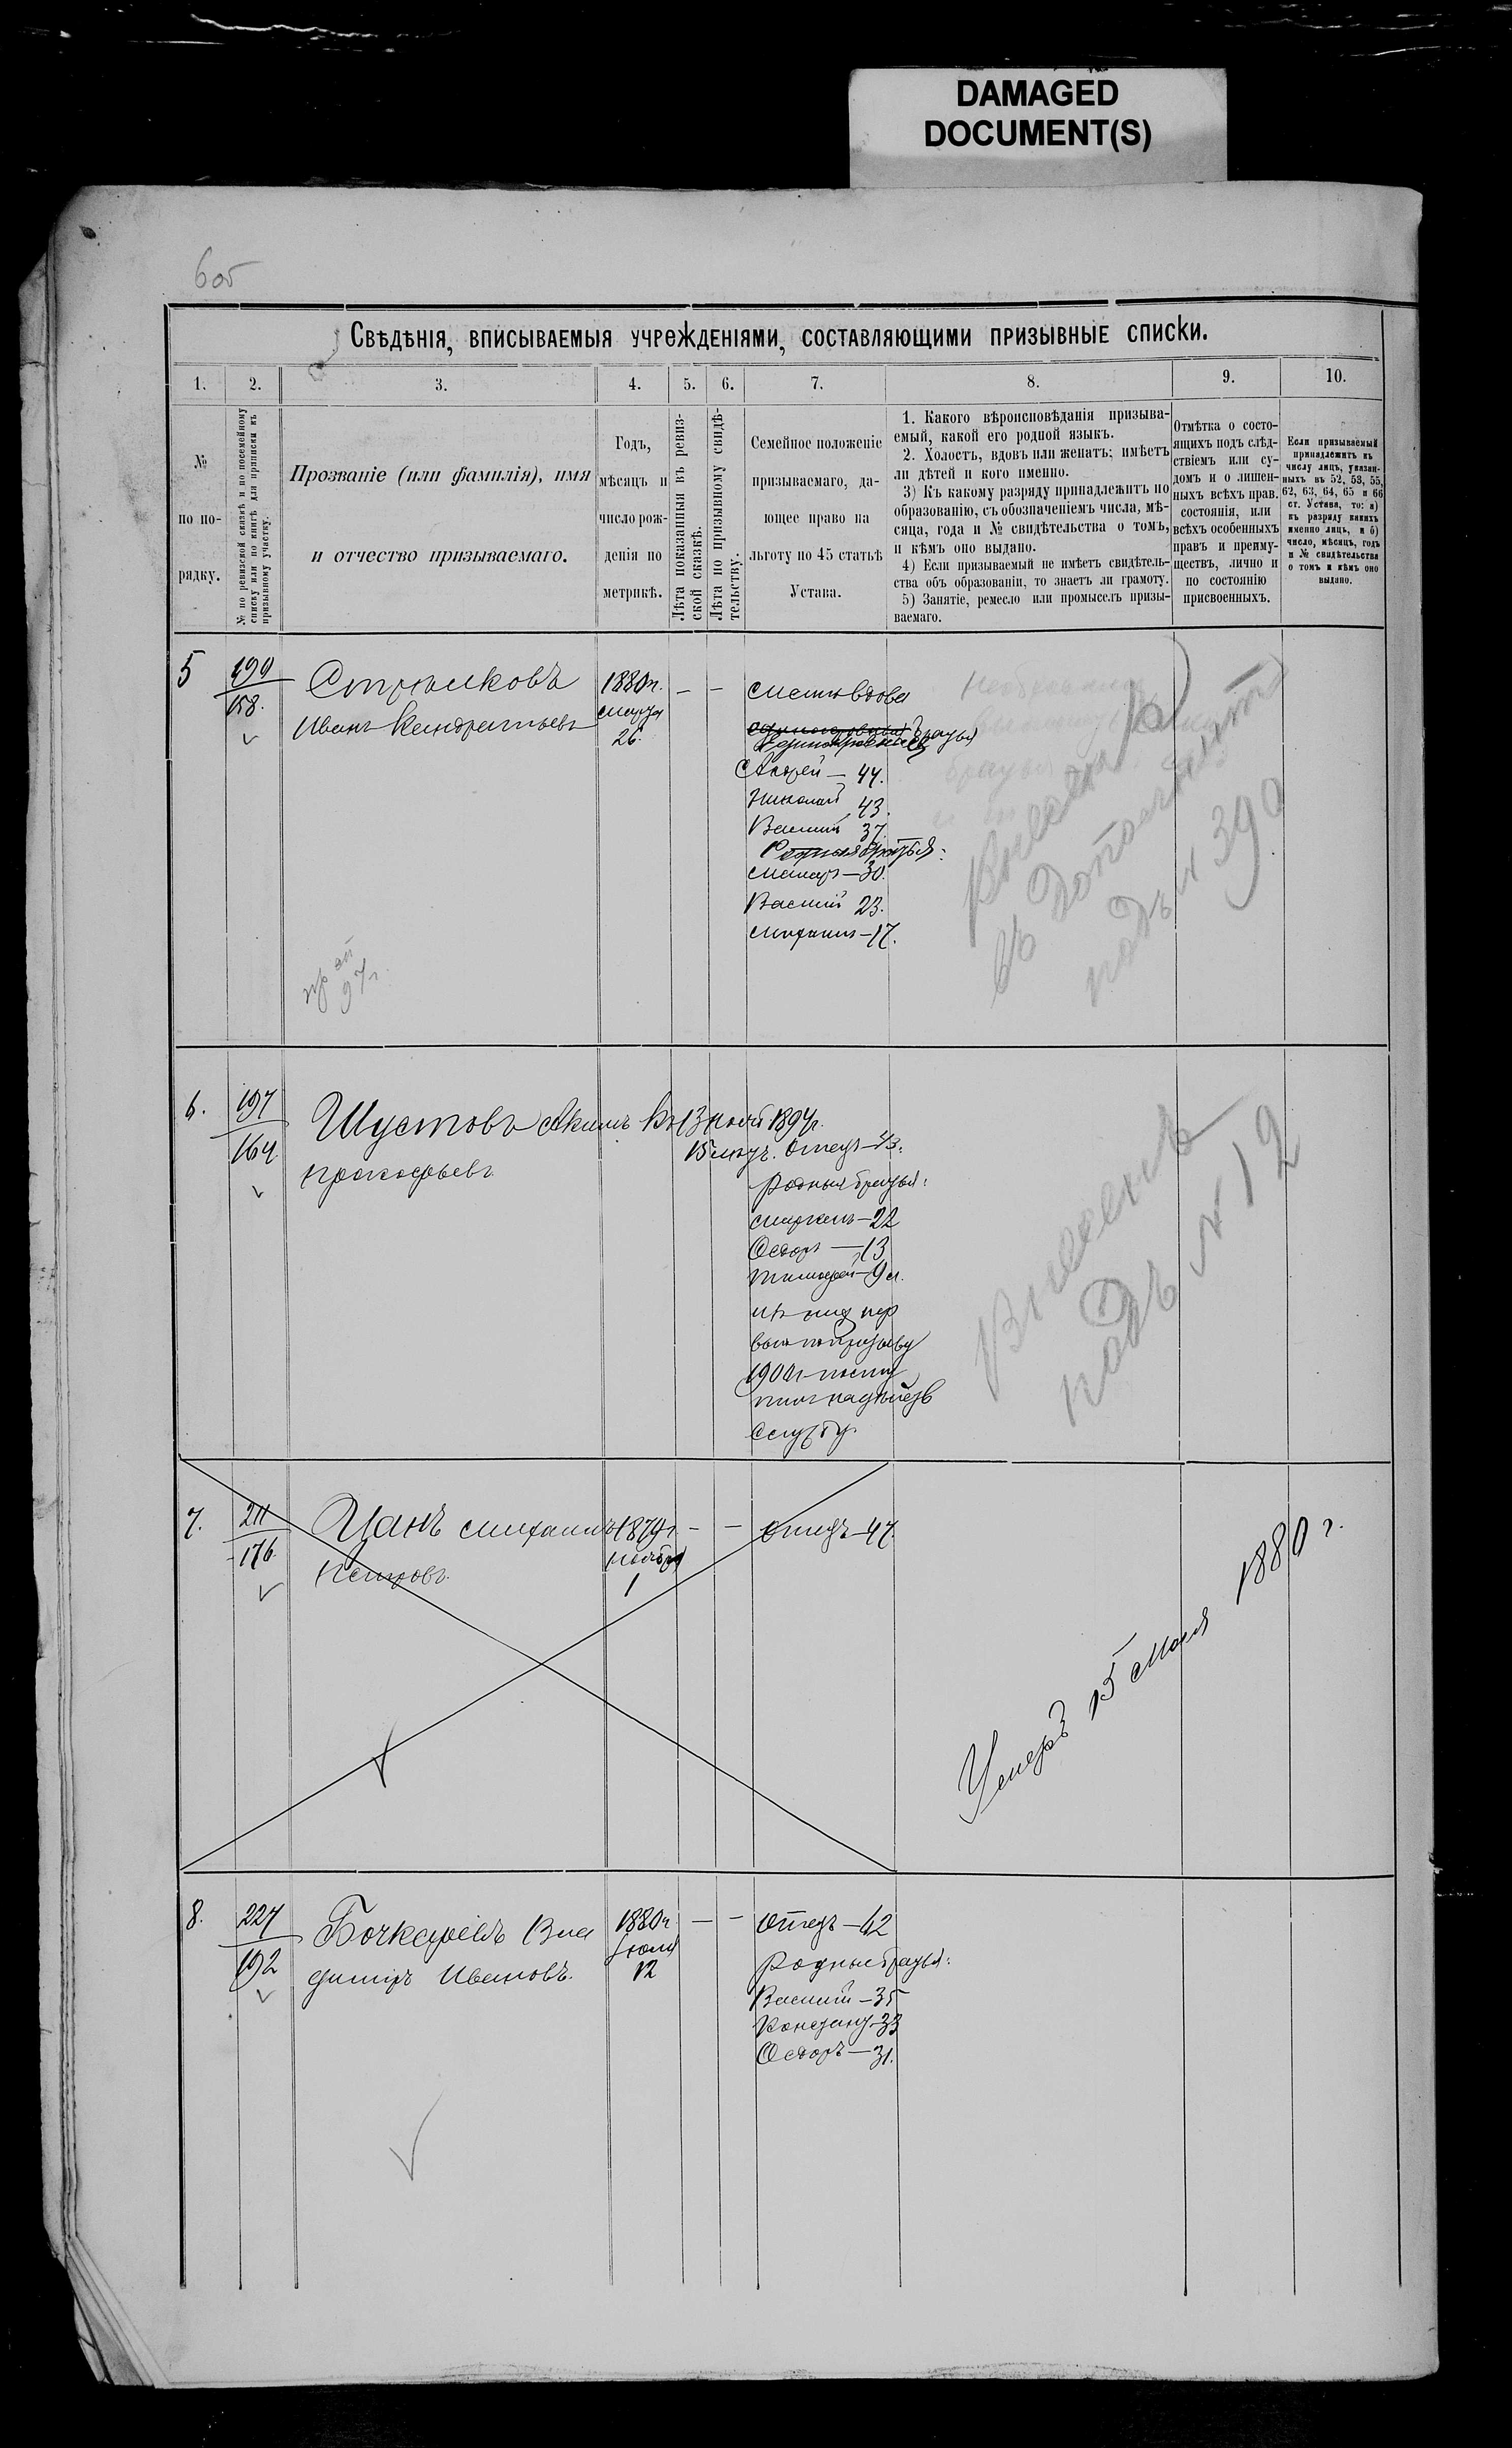 DAMAGED
DOCUMENT(S)
6об
Свѣдѣнія, вписываемыя учрежденіями, составляющими призывные списки.
1.
2.
3.
4.
5.
6.
7.
8.
9.
10.
№
по по-
рядку.
№ по ревизской сказкѣ и по посемейному
списку или по книгѣ для приписки къ
призывному участку.
Прозваніе (или фамилія), имя
и отчество призываемаго.
Годъ,
мѣсяцъ и
число рож-
денія по
метрикѣ.
Лѣта показанныя въ ревиз-
ской сказкѣ.
Лѣта по призывному свидѣ-
тельству.
Семейное положеніе
призываемаго, да-
ющее право на
льготу по 45 статьѣ
Устава.
1. Какого вѣроисповѣданія призыва-
емый, какой его родной языкъ.
2. Холостъ, вдовъ или женатъ; имѣетъ
ли дѣтей и кого именно.
3) Къ какому разряду принадлежитъ по
образованію, съ обозначеніемъ числа, мѣ-
сяца, года и № свидѣтельства о томъ,
и кѣмъ оно выдано.
4) Если призываемый не имѣетъ свидѣтель-
ства объ образованіи, то знаетъ ли грамоту.
5) Занятіе, ремесло или промыселъ призы-
ваемаго.
Отмѣтка о состо-
ящихъ подъ слѣд-
ствіемъ или су-
домъ и о лишен-
ныхъ всѣхъ прав.
состоянія, или
всѣхъ особенныхъ
правъ и преиму-
ществъ, лично и
по состоянію
присвоенныхъ.
Если призываемый
принадлежитъ къ
числу лицъ, указан-
ныхъ въ 52, 53, 55,
62, 63, 64, 65 и 66
ст. Устава, то: а)
къ разряду какихъ
именно лицъ, и б)
число, мѣсяцъ, годъ
и № свидѣтельства
о томъ и кѣмъ оно
выдано.
5
190
158.
Стрѣлковъ
Иванъ Кондратьевъ
1880г.
марта
26.
— —
вдова
братья
Андрей — 44.
Николай 43.
Василій 37.
Родные братья:
30.
Василій 23.
Михаилъ — 17.
Внесенъ
въ дополнит
подъ № 390
97г.
6.
197
164
Шустовъ Акимъ
Прокофьевъ
1894г.
Отецъ — 43.
Родныя братья:
22
Ѳедоръ — 13
Тимофей — 9 л.
1901г
службу.
Внесенъ
подъ № 12
7.
211
176.
Цанъ Михаилъ
Петровъ.
1879г.
ноября
1
— —
отецъ — 47
Умеръ 15 Мая 1880 г.
8.
227
192
Бочкарёвъ Вла
диміръ Ивановъ.
1880г.
Іюля
12
— —
Отецъ — 62
Родные братья:
Василій — 35
Констант. 33
Ѳедоръ — 31.